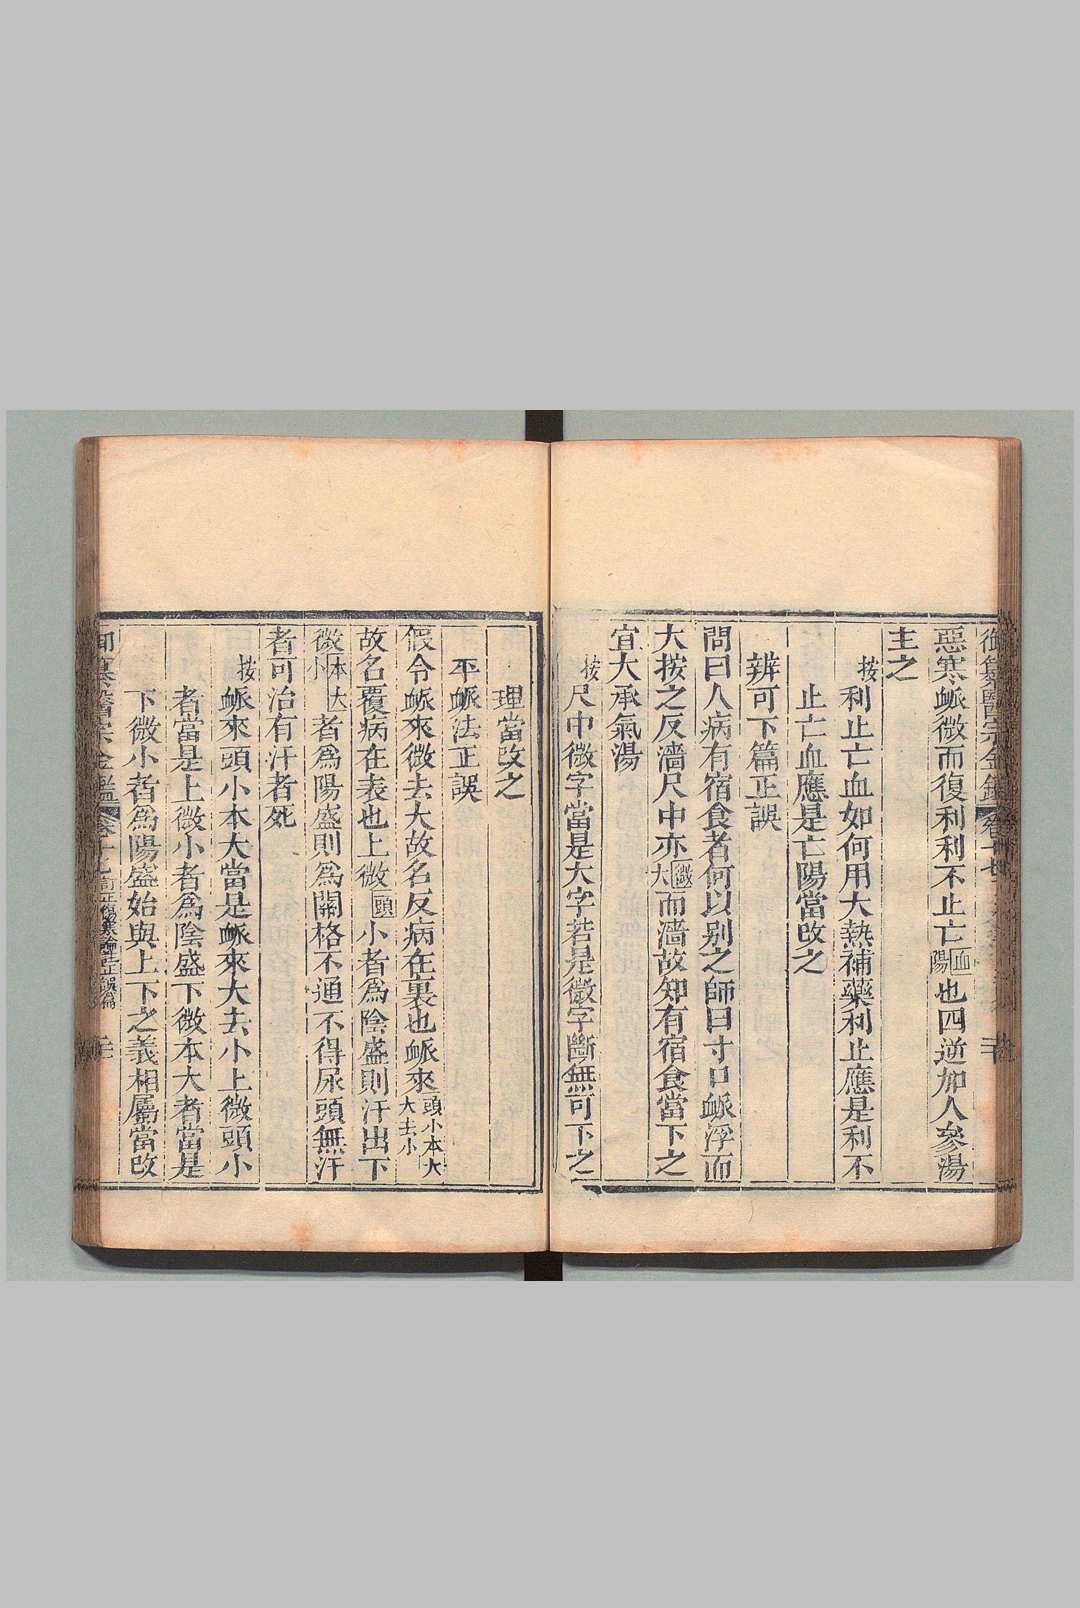 御纂醫宗金鑑
惡寒衇微而復利利不止亡血陽也四逆加人參湯
主之
按利止亡血如何用大熱補藥利止應是利不
止亡血應是亡陽當改之
辨可下篇正誤
問曰人病有宿食者何以别之師曰寸口衇浮而
大按之反濇尺中亦微大而濇故知有宿食當下之
宜大承氣湯
按尺中微字當是大字若是微字斷無可下之
理當改之
平衇法正誤
假令衇來微去大故名反病在裏也衇來頭小本大大去小
故名覆病在表也上微頭小者爲陰盛則汗出下
微本大小者爲陽盛則爲關格不通不得尿頭無汗
者可治有汗者死
按衇來頭小本大當是衇來大去小上微頭小
者當是上微小者爲陰盛下微本大者當是
下微小者爲陽盛始與上下之義相屬當改
御纂醫宗金鑑 卷十七 訂正傷寒論註正誤篇